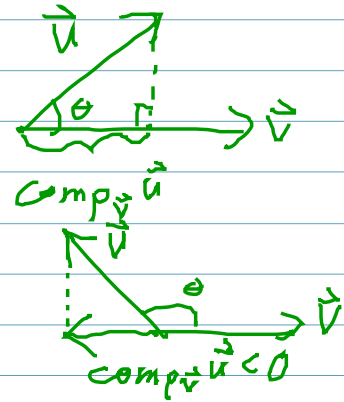 u⃗
θ
v⃗
comp_v⃗ u⃗
u⃗
θ
v⃗
comp_v⃗ u⃗ < 0